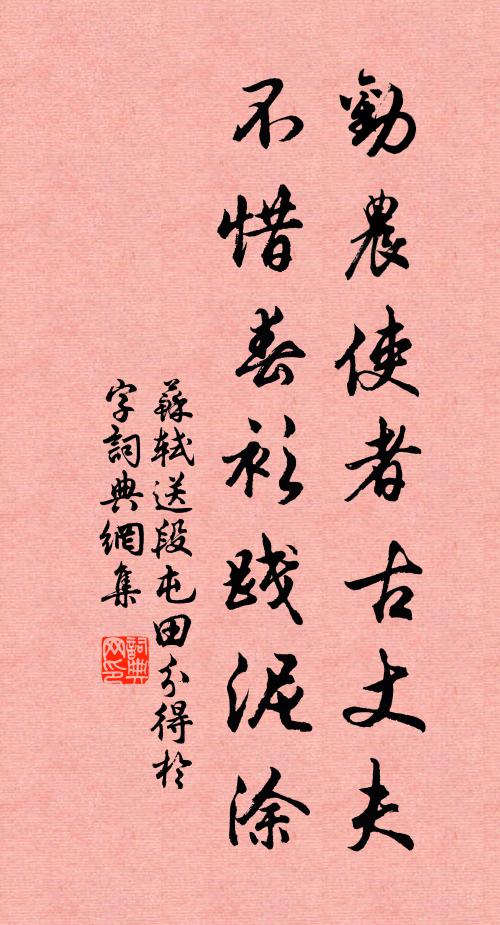 勸農使者古丈夫
不惜春衫踐泥涂
蘇軾送段屯田分得於
字詞典網集
詞典网印